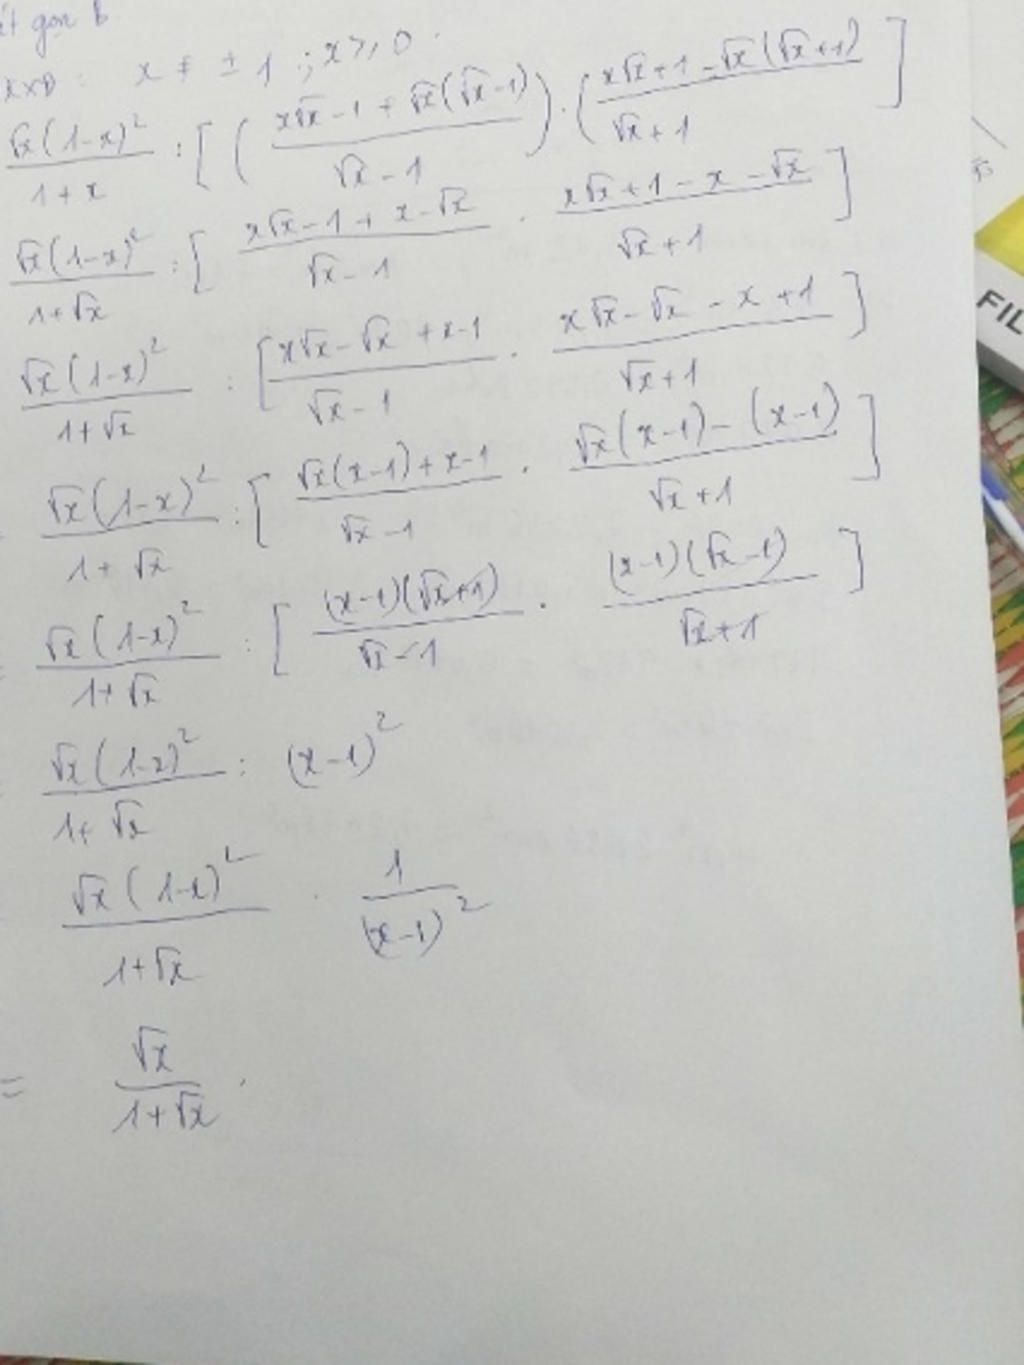 út gọn B
ĐKXĐ: x ≠ ± 1 ; x ≥ 0.
√x(1-x)²/(1+x) : [ ( (x√x - 1 + √x(√x-1))/(√x-1) ) . ( (x√x+1 - √x(√x+1))/(√x+1) ]
√x(1-x)²/(1+√x) : [ (x√x - 1 + x - √x)/(√x-1) . (x√x+1 - x - √x)/(√x+1) ]
√x(1-x)²/(1+√x) : [ (x√x - √x + x-1)/(√x-1) . (x√x - √x - x + 1)/(√x+1) ]
√x(1-x)²/(1+√x) : [ (√x(x-1) + x-1)/(√x-1) . (√x(x-1) - (x-1))/(√x+1) ]
= √x(1-x)²/(1+√x) : [ (x-1)(√x+1)/(√x-1) . (x-1)(√x-1)/(√x+1) ]
√x(1-x)²/(1+√x) : (x-1)²
√x(1-x)²/(1+√x) . 1/(x-1)²
= √x/(1+√x) .
FIL